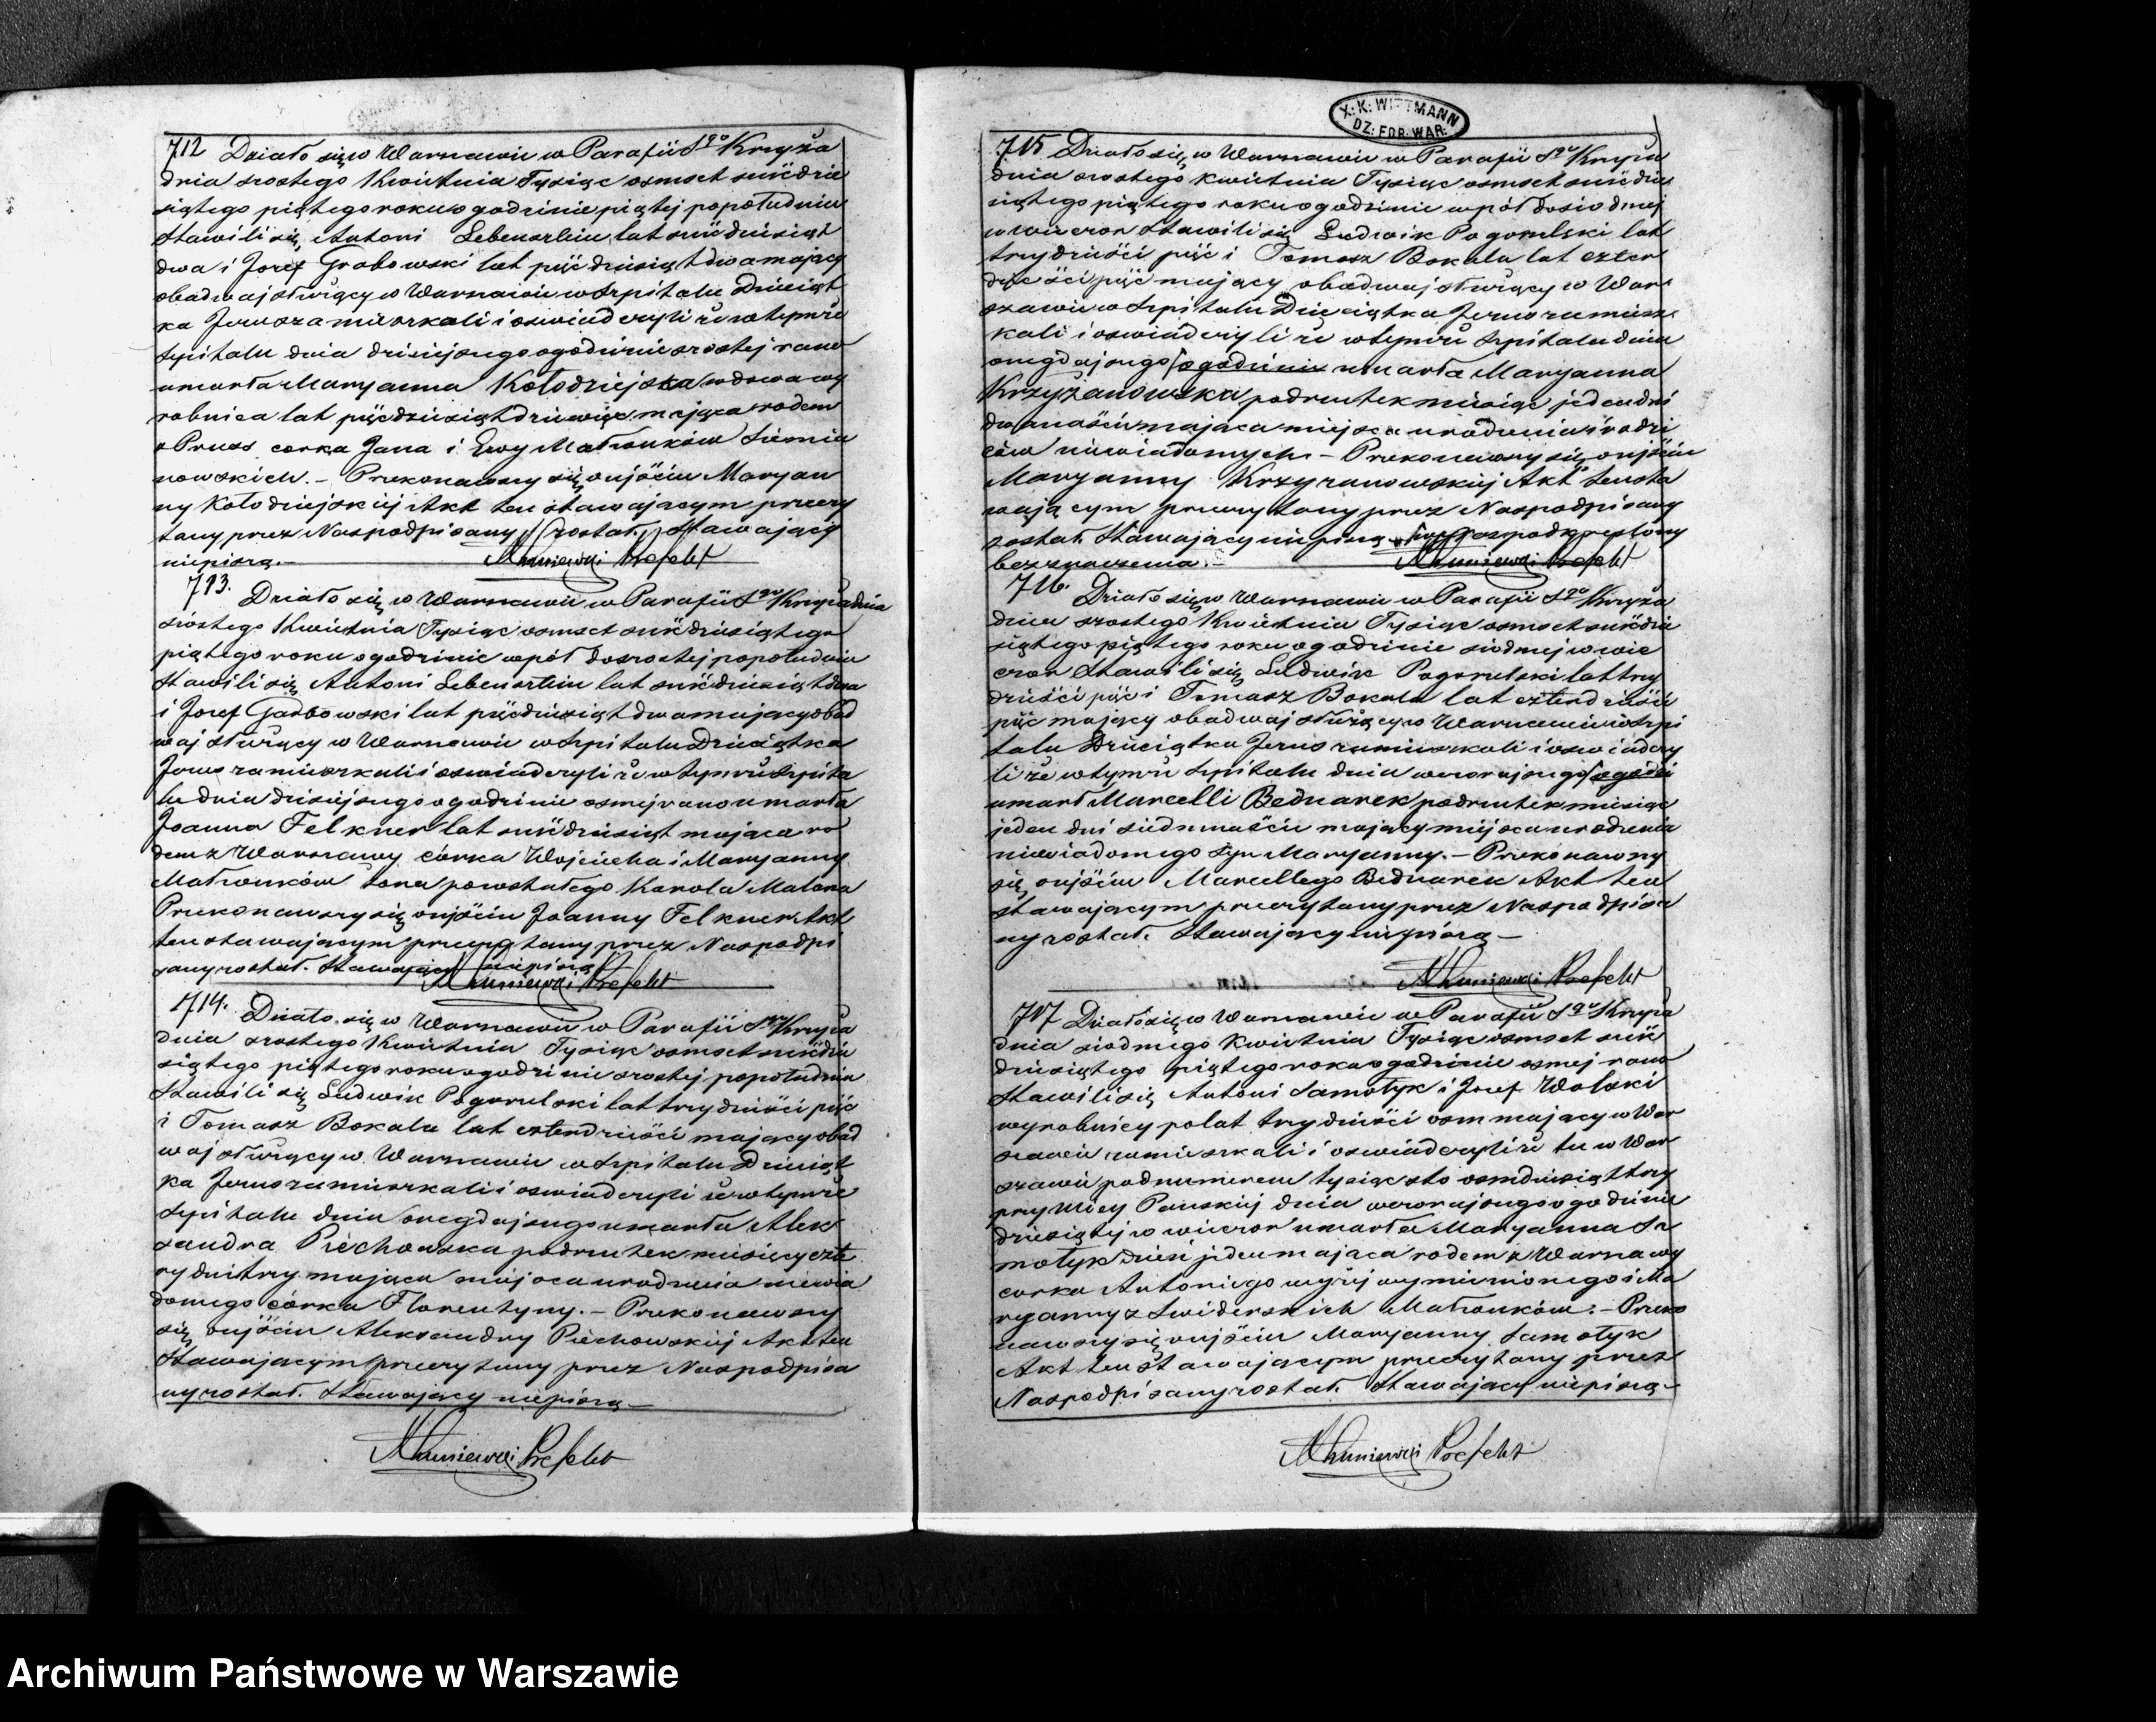 712 Działo się w Warszawie w Parafii Sgo Krzyża
dnia szostego Kwietnia Tysiąc osmset sześćdzie
siątego piątego roku o godzinie piątej popołudniu
Stawili się Antoni Lebensztein lat sześćdziesiąt
dwa i Jozef Grabowski lat pięćdziesiąt dwa mający
obadwaj służący w Warszawie w Szpitalu Dzieciąt
ka Jezus zamieszkali i oświadczyli że w tymże
Szpitalu dnia dzisiejszego o godzinie szostej rano
umarła Maryanna Kołodziejska wdowa wy
robnica lat pięćdziesiąt dziewięć mająca rodem
z Pruss corka Jana i Ewy Małżonków Siemia
nowskich. – Przekonawszy się o zejściu Maryan
ny Kołodziejskiej Akt ten stawającym przeczy
tany przez Nas podpisany został. Stawający
niepiszą. –
Prefekt
713. Działo się w Warszawie w Parafii Sgo Krzyża dnia
szostego Kwietnia Tysiąc osmset sześćdziesiątego
piątego roku o godzinie wpół do szostej popołudniu
Stawili się Antoni Lebensztein lat sześćdziesiąt dwa
i Jozef Grabowski lat pięćdziesiąt dwa mający obad
waj służący w Warszawie w Szpitalu Dzieciątka
Jezus zamieszkali i oświadczyli że w tymże Szpita
lu dnia dzisiejszego o godzinie osmej rano umarła
Joanna Felkner lat sześćdziesiąt mająca ro
dem z Warszawy córka Wojciecha i Maryanny
Małżonków żona pozostałego Karola Malarza
Przekonawszy się o zejściu Joanny Felkner Akt
ten stawającym przeczytany przez Nas podpi
sany został. Stawający niepiszą –
Prefekt
714. Działo się w Warszawie w Parafii Sgo Krzyża
dnia szostego Kwietnia Tysiąc osmset sześćdzie
siątego piątego roku o godzinie szostej popołudniu
Stawili się Ludwik Pogorzelski lat trzydzieści pięć
i Tomasz Bokala lat czterdzieści mający obad
waj służący w Warszawie w Szpitalu Dzieciąt
ka Jezus zamieszkali i oświadczyli że w tymże
Szpitalu dnia onegdajszego umarła Alek
sandra Piechowska podrzutek miesięcy czte
ry dni trzy mająca miejsca urodzenia niewia
domego córka Florentyny. – Przekonawszy
się o zejściu Aleksandry Piechowskiej Akt ten
Stawającym przeczytany przez Nas podpisa
ny został. Stawający niepiszą –
Prefekt
X: K: WITTMANN
DZ: FOR: WAR:
715 Działo się w Warszawie w Parafii Sgo Krzyża
dnia szostego Kwietnia Tysiąc osmset sześćdzie
siątego piątego roku o godzinie wpół do siodmej
wieczor Stawili się Ludwik Pogorzelski lat
trzydzieści pięć i Tomasz Bokala lat czter
dzieści pięć mający obadwaj służący w War
szawie w Szpitalu Dzieciątka Jezus zamiesz
kali i oświadczyli że w tymże Szpitalu dnia
onegdajszego o godzinie umarła Maryanna
Krzyżanowska podrzutek miesiąc jeden dni
dwanaście mająca miejsca urodzenia i rodzi
ców niewiadomych. – Przekonawszy się o zejściu
Maryanny Krzyżanowskiej Akt ten sta
wającym przeczytany przez Nas podpisany
został. Stawający niepiszą podkreślony
bez znaczenia. –
Prefekt
716. Działo się w Warszawie w Parafii Sgo Krzyża
dnia szostego Kwietnia Tysiąc osmset sześćdzie
siątego piątego roku o godzinie siodmej w wie
czor Stawili się Ludwik Pogorzelski lat trzy
dzieści pięć i Tomasz Bokala lat czterdzieści
pięć mający obadwaj służący w Warszawie w Szpi
talu Dzieciątka Jezus zamieszkali i oświadczy
li że w tymże Szpitalu dnia wczorajszego o godzi
umarł Marcelli Bednarek podrzutek miesiąc
jeden dni siedmnaście mający miejsca urodzenia
niewiadomego Syn Maryanny. – Przekonawszy
się o zejściu Marcellego Bednarek Akt ten
stawającym przeczytany przez Nas podpisa
ny został. Stawający niepiszą –
Prefekt
717 Działo się w Warszawie w Parafii Sgo Krzyża
dnia siodmego Kwietnia Tysiąc osmset sześć
dziesiątego piątego roku o godzinie osmej rano
Stawili się Antoni Samotyk i Jozef Wolski
wyrobnicy po lat trzydzieści osm mający w War
szawie zamieszkali i oświadczyli że tu w War
szawie pod numerem tysiąc sto osmdziesiąt trzy
przy Ulicy Pańskiej dnia wczorajszego o godzinie
dziesiątej w wieczor umarła Maryanna Sa
motyk dzień jeden mająca rodem z Warszawy
corka Antoniego wyżej wymienionego i Ma
ryanny z Swiderskich Małżonków. – Przeko
nawszy się o zejściu Maryanny Samotyk
Akt ten stawającym przeczytany przez
Nas podpisany został. Stawający niepiszą –
Prefekt
Archiwum Państwowe w Warszawie